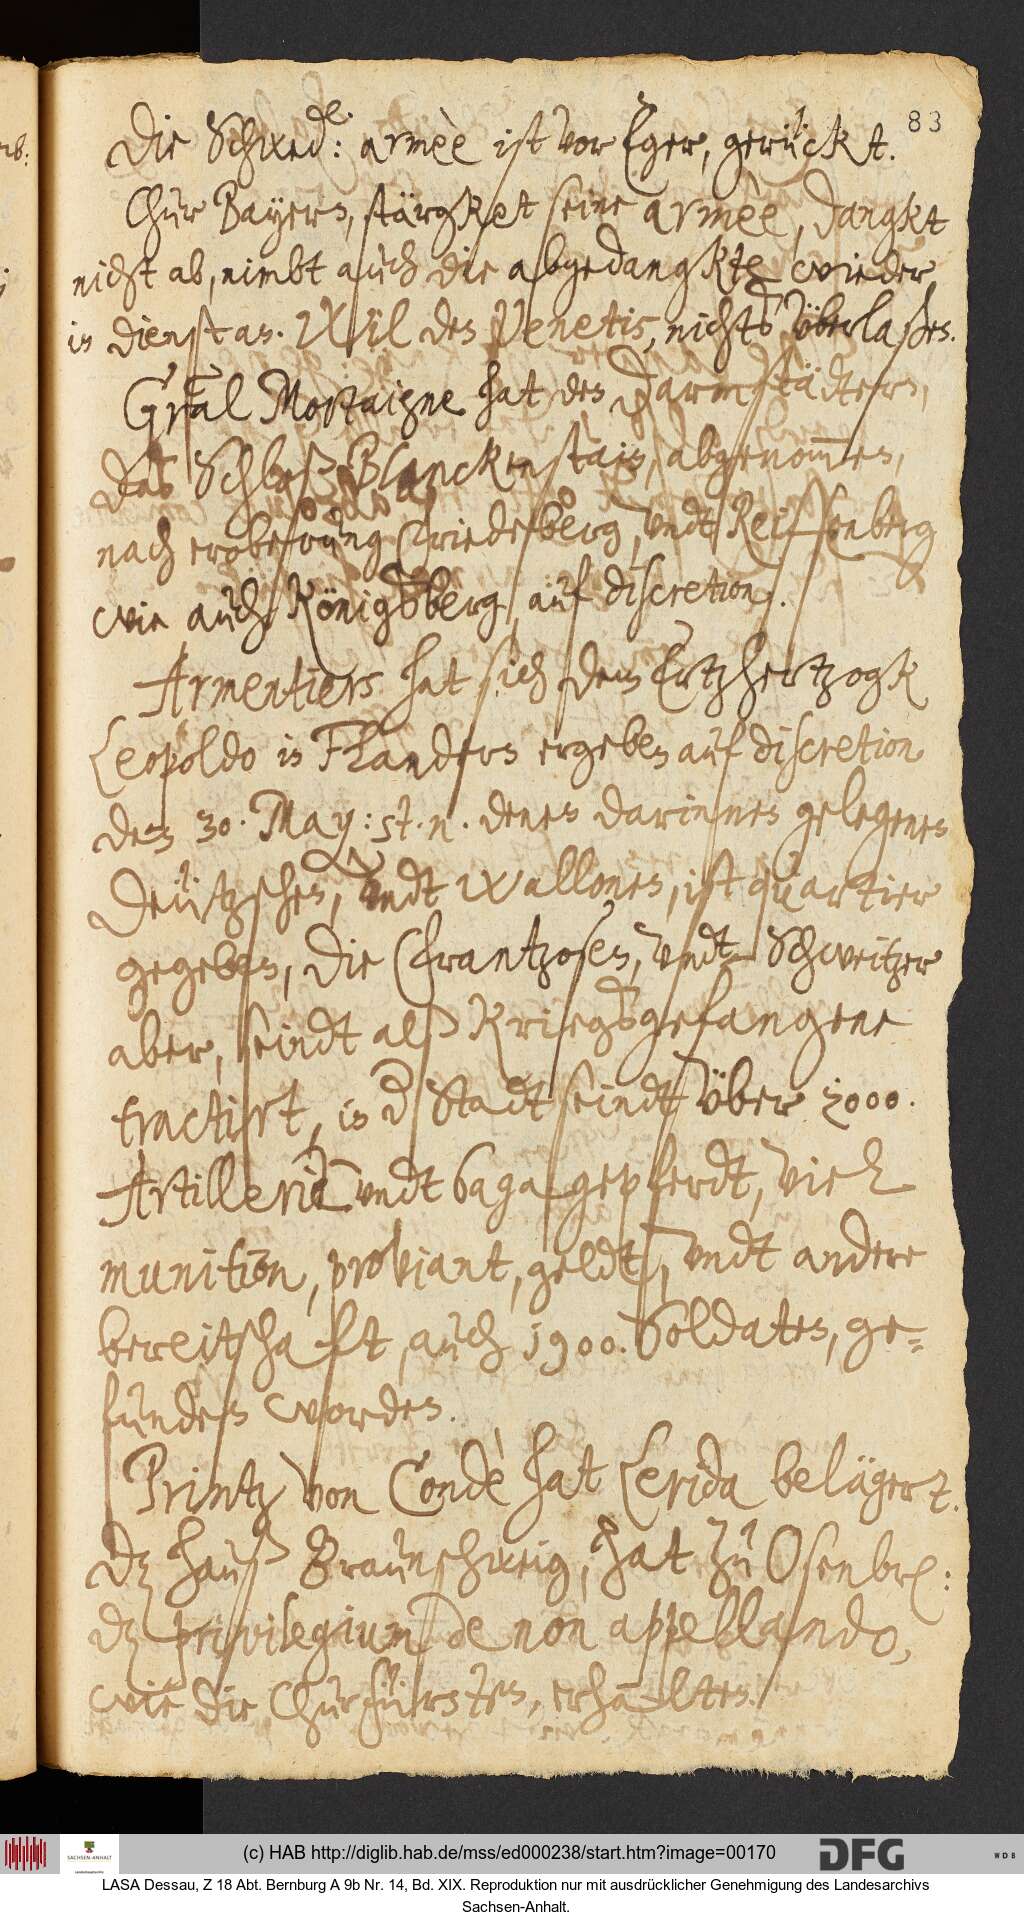 83
Die Schwed: armèe ist vor Eger, gerückt.
Chur Bayern, stärgket seine armèe, dangkt
nicht ab, nimbt auch die abgedangkte wieder
in dienst an. Wil den Venetis, nichts überlaßen.
Gräl Mortaigne hat den Darmstädtern,
das Schloß Blanckenstain, abgenom̅en,
nach eroberung Friedeberg, undt Reiffenberg
wie auch Königsberg, auf discretion.
Armentiers hat sich dem Ertzhertzogk
Leopoldo in Flandern ergeben auf discretion
den 30. May: st. n. denen darinnen gelegenen
Deützschen, undt Wallonen, ist quartier
gegeben, die Frantzosen, undt Schweitzer
aber, seindt alß Kriegsgefangene
tractirt, in d Stadt seindt über 2000.
Artillerie undt bagagepferdt, viel
munition, proviant, geldt, undt andere
bereitschaft, auch 1900. Soldaten, ge-
funden worden.
Printz von Condè hat Lerida belägert.
Dz hauß Braunschweig, hat zu Osenbr:
dz privilegium de non appellando,
wie die Churfürsten, erhalten.
(c) HAB http://diglib.hab.de/mss/ed000238/start.htm?image=00170
SACHSEN-ANHALT
DFG
WDB
LASA Dessau, Z 18 Abt. Bernburg A 9b Nr. 14, Bd. XIX. Reproduktion nur mit ausdrücklicher Genehmigung des Landesarchivs
Sachsen-Anhalt.